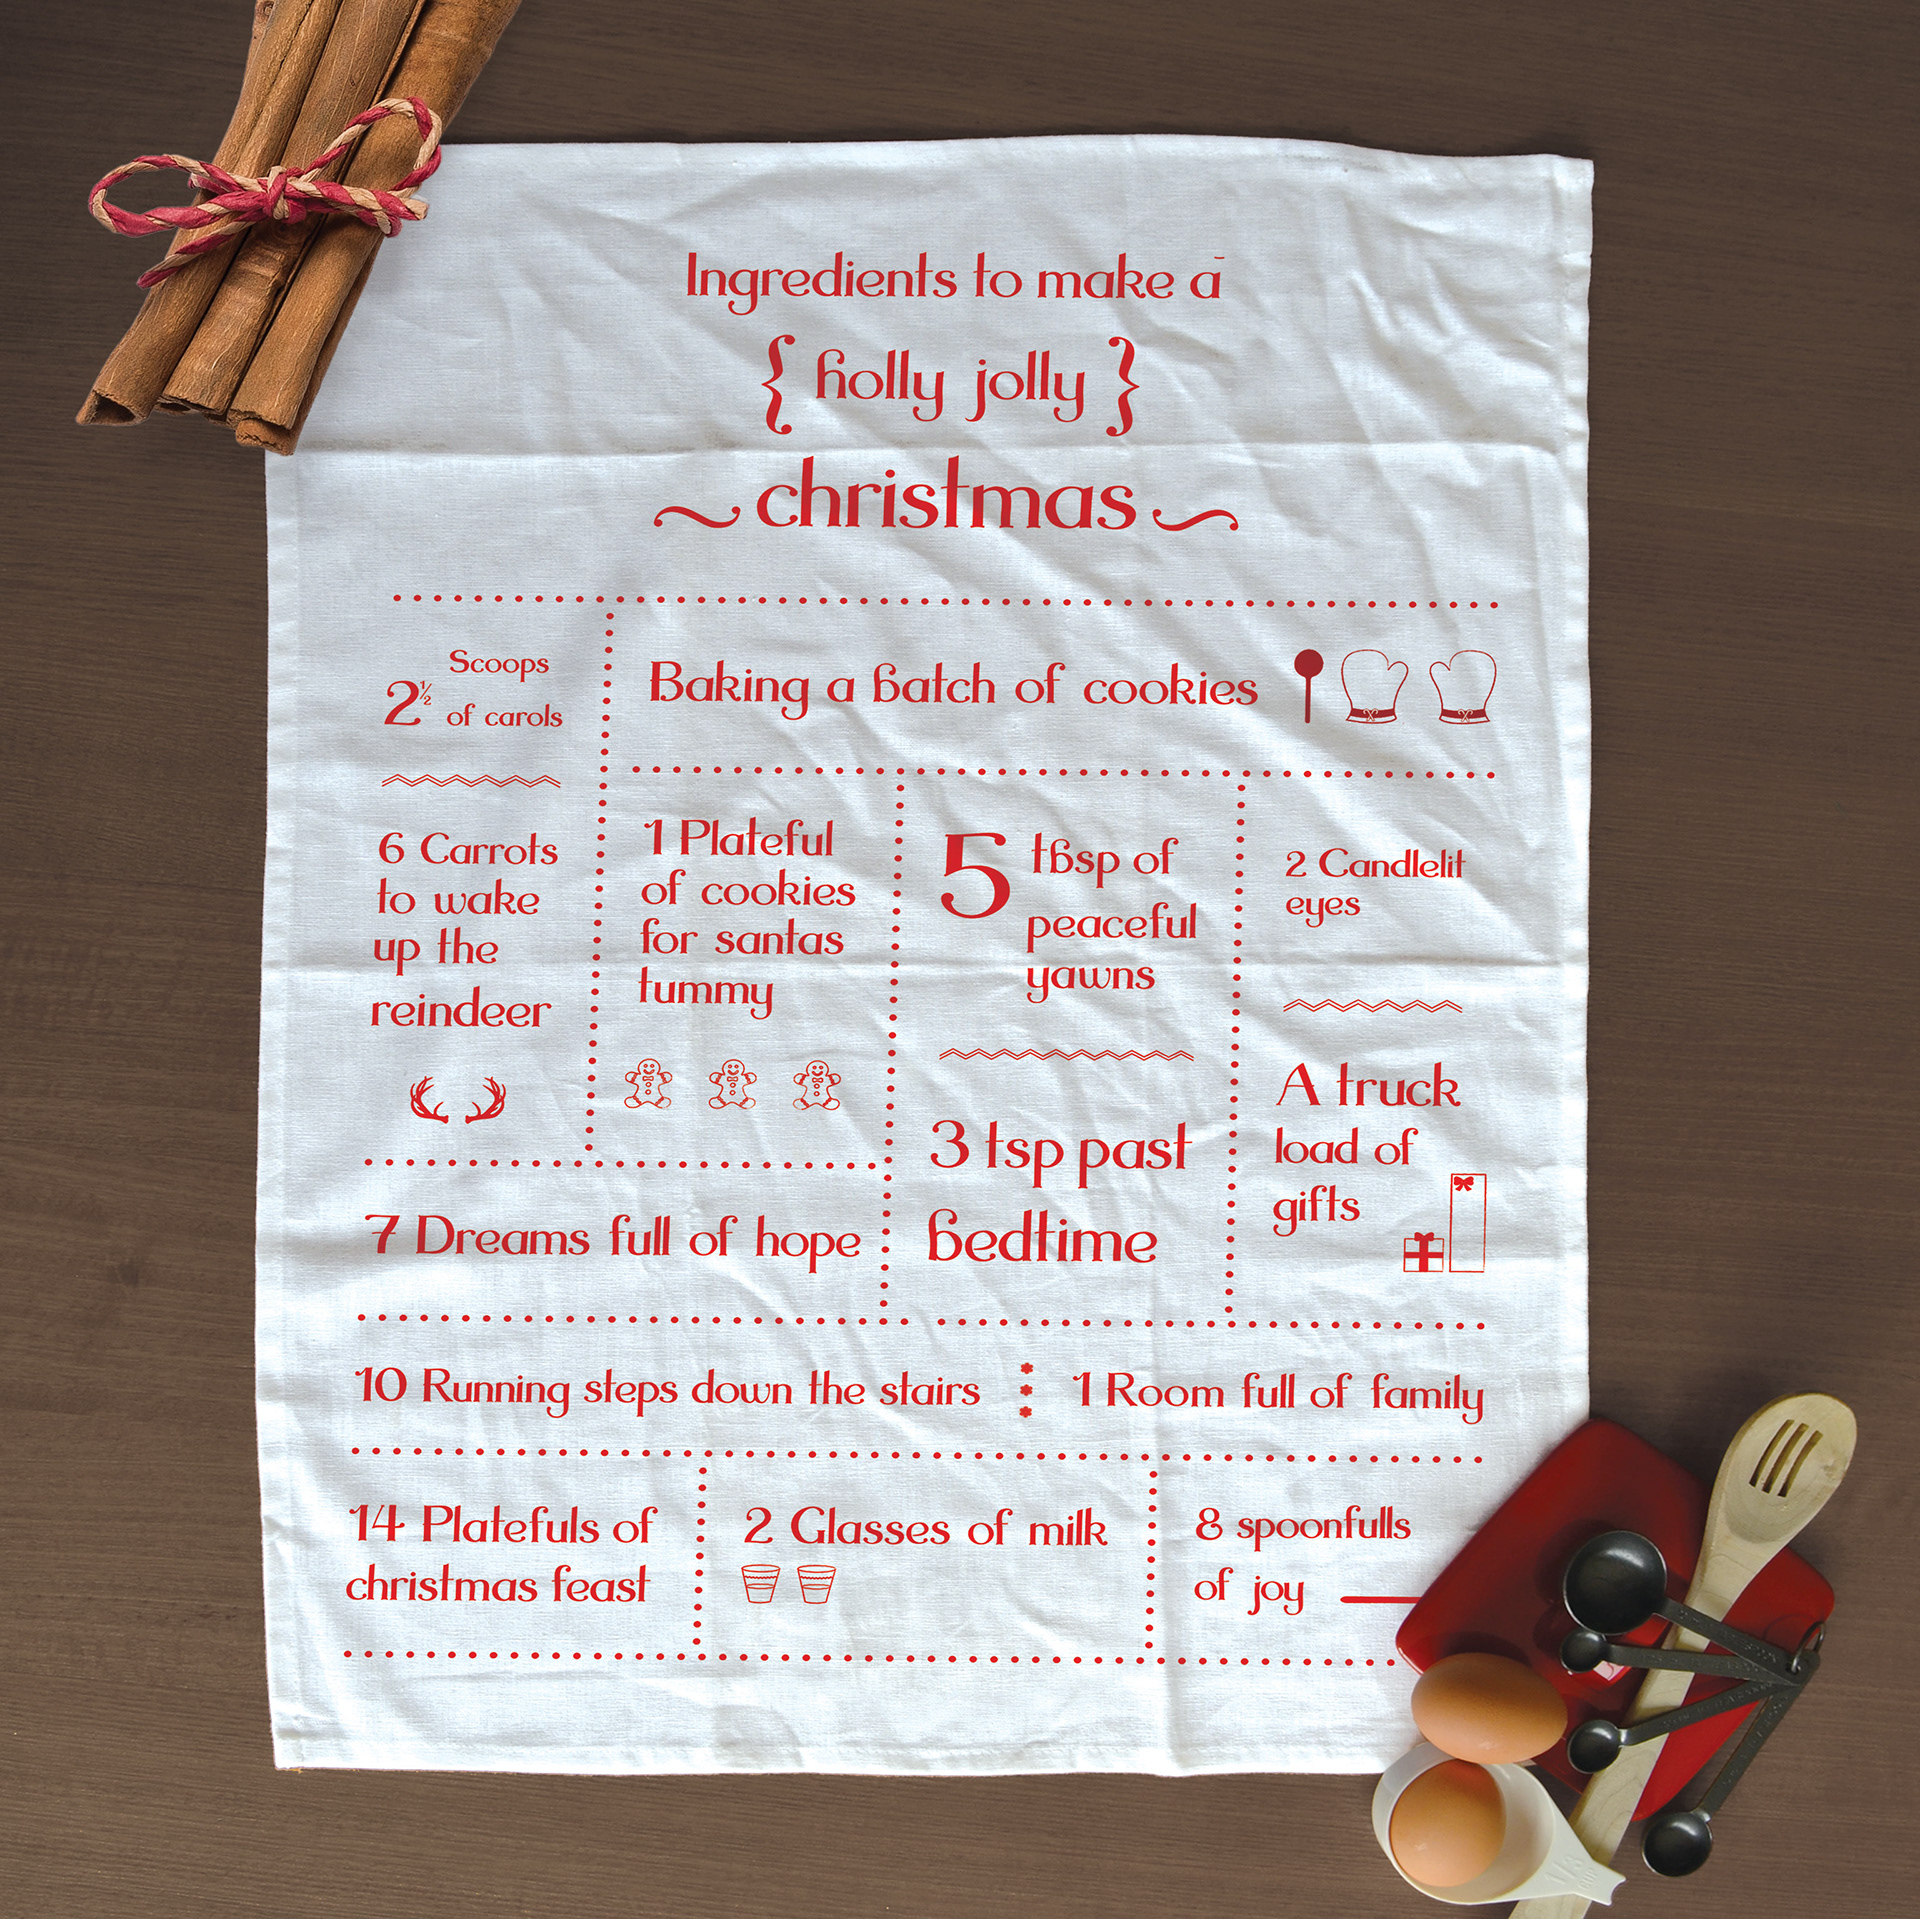 Ingredients to make a
{ holly jolly }
~christmas~
Scoops
2½
of carols
Baking a batch of cookies
6 Carrots
to wake
up the
reindeer
1 Plateful
of cookies
for santas
tummy
5 tbsp of
peaceful
yawns
2 Candlelit
eyes
3 tsp past
bedtime
A truck
load of
gifts
7 Dreams full of hope
10 Running steps down the stairs
1 Room full of family
14 Platefuls of
christmas feast
2 Glasses of milk
8 spoonfulls
of joy